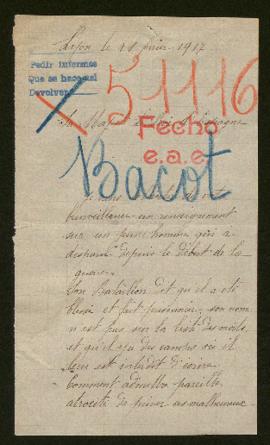 Lyon le 11 juin 1917
Pedir informes
Que se hace cual
Devolver
51116
Sa Majesté le Roi d'Espagne
Fecho
e.a.e.
Bacot
bienveillance un renseignement
sur un jeune homme qui a
disparu depuis le début de la
guerre.
Son Bataillon dit qu'il a été
blessé et fait prisonnier, son nom
n'est pas sur la liste des morts,
et qu'il y a des camps où il
leur est interdit d'écrire
Comment admettre pareille
atrocité de priver ces malheureux